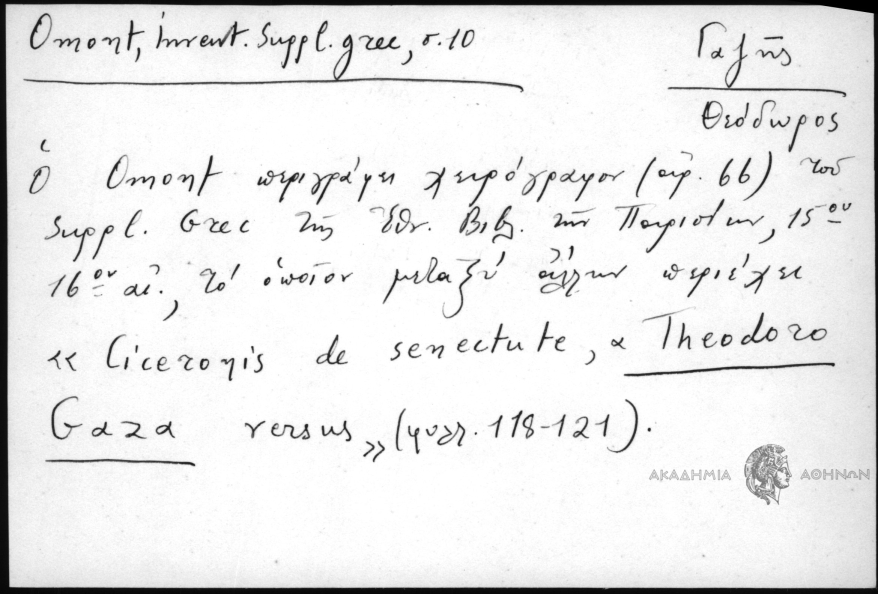 Omont, Invent. Suppl. grec, σ. 10
Γαζῆς
Θεόδωρος
Ὁ Omont περιγράφει χειρόγραφον (ἀρ. 66) τοῦ
Suppl. Grec τῆς Ἐθν. Βιβλ. τῶν Παρισίων, 15ου
16ου αἰ., τὸ ὁποῖον μεταξὺ ἄλλων περιέχει
«Ciceronis de senectute, a Theodoro
Gaza versus» (φυλλ. 118-121).
ΑΚΑΔΗΜΙΑ ΑΘΗΝΩΝ